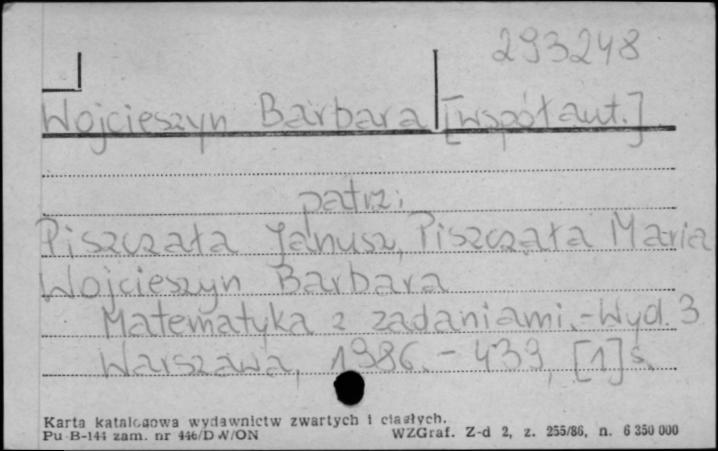 293248
Wojcieszyn Barbara [współaut.]
patrz:
Piszczała Janusz, Piszczała Maria
Wojcieszyn Barbara
Matematyka z zadaniami.-Wyd. 3
Warszawa, 1986.- 439, [1] s.
Karta katalogowa wydawnictw zwartych i ciągłych.
Pu-B-144 zam. nr 446/DW/ON WZGraf. Z-d 2, z. 255/86, n. 6 350 000